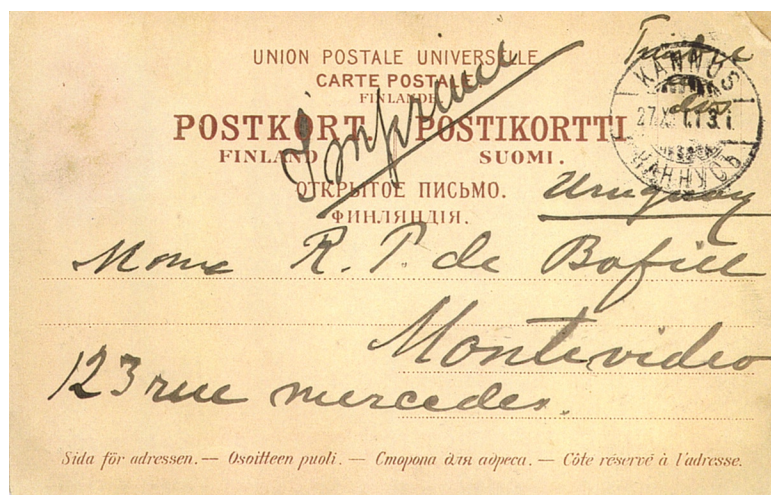 UNION POSTALE UNIVERSELLE
CARTE POSTALE
FINLANDE
POSTKORT. POSTIKORTTI
FINLAND SUOMI.
ОТКРЫТОЕ ПИСЬМО.
ФИНЛЯНДІЯ.
KANNUS
КАННУСЪ
Uruguay
R. P. de Bofill
Montevideo
123 rue mercedes.
Sida för adressen. — Osoitteen puoli. — Сторона для адреса. — Côté réservé à l'adresse.